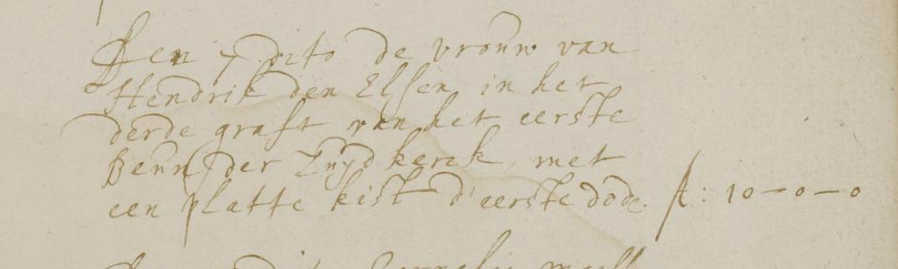 Den 7 dito de vrouw van
Hendrik den Elsen in het
derde graft van het eerste
Beun der Zuyd kerck met
een platte kist d'eerste dode. fl: 10-0-0